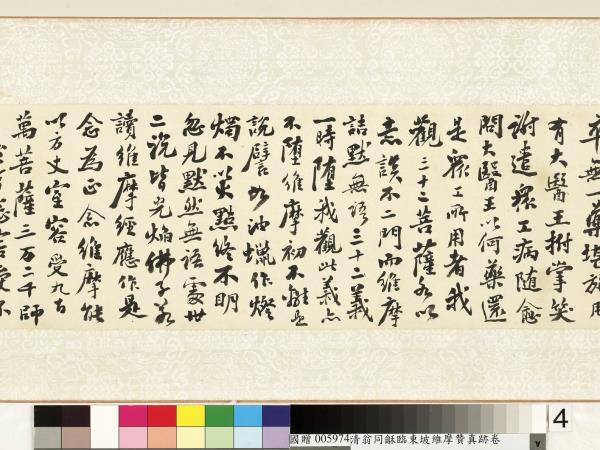 卒無一藥堪施用
有大醫王拊掌笑
謝遣衆工病隨愈
問大醫王以何藥還
是衆工所用者我
觀三十二菩薩各以
意談不二門而維摩
詰默無語三十二義
一時墮我觀此義亦
不墮維摩初不離是
說譬如油蠟作燈
燭不以火點終不明
忽見默然無語處卅
二說皆光焰佛子若
讀維摩經應作是
念為正念維摩能
以方丈室容受九百
萬菩薩三万二千師
4
國贈 005974清翁同龢臨東坡維摩贊真跡卷
A